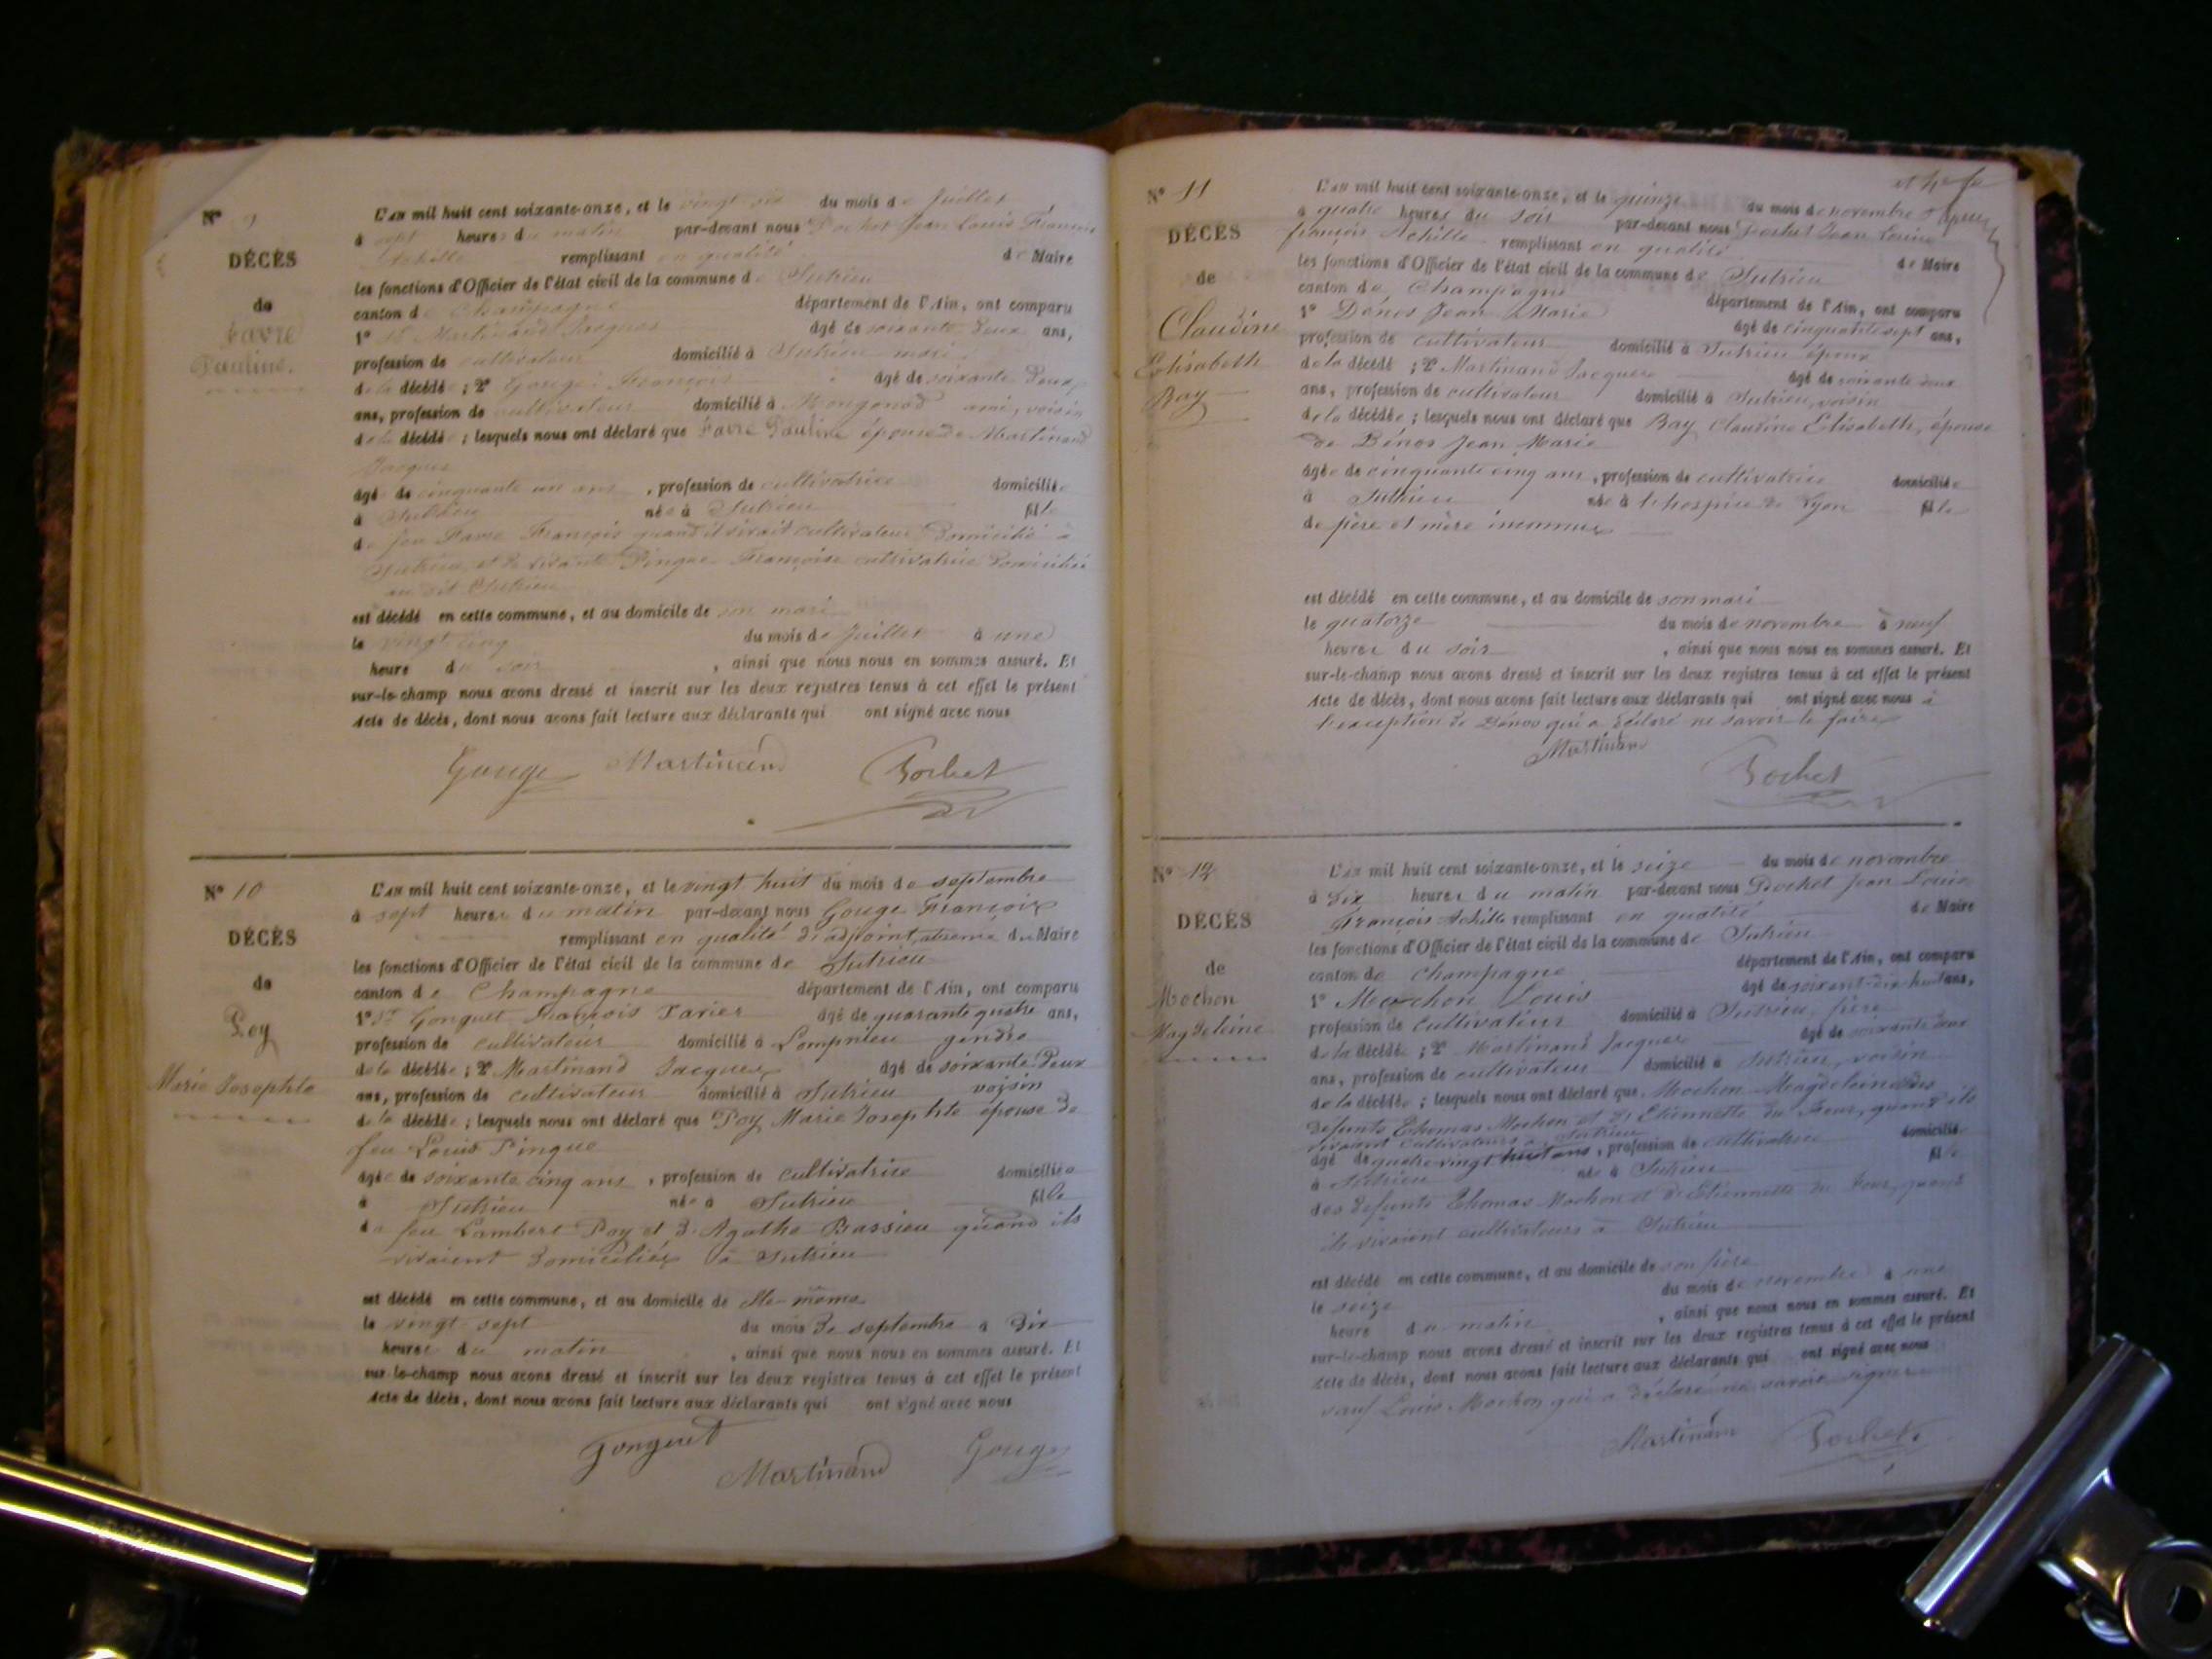 N° 9
DÉCÈS
de
Favre
Pauline.
L'an mil huit cent soixante-onze, et le vingt six du mois de Juillet
à sept heures du matin par-devant nous Jean Louis François
Achille remplissant en qualité de Maire
les fonctions d'Officier de l'état civil de la commune de Sutrieu
canton de Champagne département de l'Ain, ont comparu
1° Martinand Jacques âgé de soixante deux ans,
profession de cultivateur domicilié à Sutrieu mari
de la décédée ; 2° Gouge François âgé de soixante deux
ans, profession de cultivateur domicilié à Mongonod ami, voisin
de la décédée ; lesquels nous ont déclaré que Favre Pauline épouse de Martinand
Jacques
âgée de cinquante un ans , profession de cultivatrice domiciliée
à Sutrieu née à Sutrieu fille
de feu Favre François quand il vivait cultivateur domicilié à
Sutrieu, et de vivante Pingue Françoise cultivatrice domiciliée
au dit Sutrieu
est décédé en cette commune, et au domicile de son mari
le vingt cinq du mois de Juillet à une
heure du soir , ainsi que nous nous en sommes assuré. Et
sur-le-champ nous avons dressé et inscrit sur les deux registres tenus à cet effet le présent
Acte de décès, dont nous avons fait lecture aux déclarants qui ont signé avec nous
Gouge Martinand
N° 10
DÉCÈS
de
Poy
Marie Josephte
L'an mil huit cent soixante-onze, et le vingt huit du mois de septembre
à sept heures du matin par-devant nous Gouge François
remplissant en qualité d'adjoint, absence du Maire
les fonctions d'Officier de l'état civil de la commune de Sutrieu
canton de Champagne département de l'Ain, ont comparu
1° Sr Gonguet François Xavier âgé de quarante quatre ans,
profession de cultivateur domicilié à Lompnieu gendre
de la décédée ; 2° Martinand Jacques âgé de soixante deux
ans, profession de cultivateur domicilié à Sutrieu voisin
de la décédée ; lesquels nous ont déclaré que Poy Marie Josephte épouse de
feu Louis Pingue
âgée de soixante cinq ans , profession de cultivatrice domiciliée
à Sutrieu née à Sutrieu fille
de feu Lambert Poy et d. Agathe Bassieu quand ils
vivaient domiciliés à Sutrieu
est décédé en cette commune, et au domicile de elle-même
le vingt-sept du mois de septembre à dix
heures du matin , ainsi que nous nous en sommes assuré. Et
sur-le-champ nous avons dressé et inscrit sur les deux registres tenus à cet effet le présent
Acte de décès, dont nous avons fait lecture aux déclarants qui ont signé avec nous
Gonguet
Martinand Gouge
N° 11
DÉCÈS
de
Claudine
Elisabeth
Bay
L'an mil huit cent soixante-onze, et le quinze du mois de novembre
à quatre heures du soir par-devant nous Jean Louis
françois Achille remplissant en qualité de Maire
les fonctions d'Officier de l'état civil de la commune de Sutrieu
canton de Champagne département de l'Ain, ont comparu
1° Dénos Jean Marie âgé de cinquante sept ans,
profession de cultivateur domicilié à Sutrieu époux
de la décédé ; 2° Martinand Jacques âgé de soixante deux
ans, profession de cultivateur domicilié à Sutrieu, voisin
de la décédée ; lesquels nous ont déclaré que Bay Claudine Elisabeth, épouse
de Dénos Jean Marie
âgée de cinquante cinq ans , profession de cultivatrice domiciliée
à Sutrieu née à l'hospice de Lyon fille
de père et mère inconnus
est décédé en cette commune, et au domicile de son mari
le quatorze du mois de novembre à neuf
heures du soir , ainsi que nous nous en sommes assuré. Et
sur-le-champ nous avons dressé et inscrit sur les deux registres tenus à cet effet le présent
Acte de décès, dont nous avons fait lecture aux déclarants qui ont signé avec nous à
l'exception de Dénos qui a déclaré ne savoir le faire
Martinand
N° 12
DÉCÈS
de
Mochon
Magdeleine
L'an mil huit cent soixante-onze, et le seize du mois de novembre
à dix heures du matin par-devant nous Jean Louis
François Achille remplissant en qualité de Maire
les fonctions d'Officier de l'état civil de la commune de Sutrieu
canton de Champagne département de l'Ain, ont comparu
1° Mochon Louis âgé de soixant-dix huit ans,
profession de cultivateur domicilié à Sutrieu, frère
de la décédée ; 2° Martinand Jacques âgé de soixante deux
ans, profession de cultivateur domicilié à Sutrieu, voisin
de la décédée ; lesquels nous ont déclaré que Mochon Magdeleine des
défunts Thomas Mochon et d'Etiennette quand ils
vivaient cultivateurs à Sutrieu
âgé de quatre-vingt huit ans , profession de cultivatrice domicilié
à Sutrieu née à Sutrieu fille
des défunts Thomas Mochon et d'Etiennette quand
ils vivaient cultivateurs à Sutrieu
est décédé en cette commune, et au domicile de son frère
le seize du mois de novembre à une
heure du matin , ainsi que nous nous en sommes assuré. Et
sur-le-champ nous avons dressé et inscrit sur les deux registres tenus à cet effet le présent
Acte de décès, dont nous avons fait lecture aux déclarants qui ont signé avec nous
sauf Louis Mochon qui a déclaré ne savoir signer
Martinand